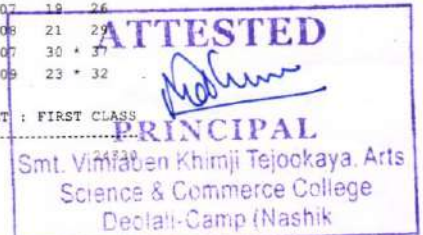 07 19 26
08 21 29
ATTESTED
07 30 * 37
09 23 * 32
T : FIRST CLASS
PRINCIPAL
Smt. Vimlaben Khimji Tejookaya. Arts
Science & Commerce College
Deolali-Camp (Nashik